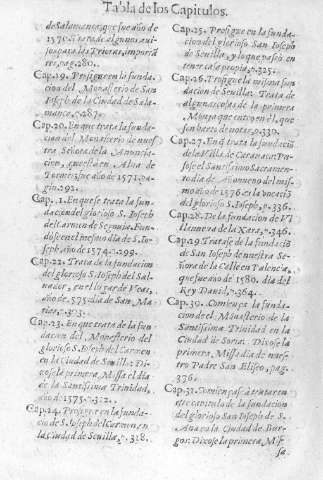 Tabla de los Capitulos.
de Salamanca, que fue año de
1575. Trata de algunos aui-
sos para las Prioras, importā
tes, pag. 280.
Cap. 19. Prosigue en la funda-
cion del Monasterio de San
Ioseph de la Ciudad de Sala-
manca, p. 287.
Cap. 20. En que trata la funda-
cion del Monasterio de nue-
stra Señora de la Anuncia-
cion, que està en Alua de
Tormes: fue año de 1571. pa-
gin. 292.
Cap. 21. En que se trata la fun-
dacion del glorioso S. Ioseph
del Carmen de Segouia. Fun-
dose en el mesmo dia de S. Io-
seph, año de 1574. p. 299.
Cap. 22. Trata de la fundacion
del glorioso S. Ioseph del Sal-
uador, en el lugar de Veas,
año de 1575. dia de San Ma-
tias, p. 303.
Cap. 23. En que trata de la fun-
dacion del Monesterio del
glorioso S. Ioseph del Carmen
en la Ciudad de Seuilla: Di-
xose la primera Missa el dia
de la Santissima Trinidad,
año de 1575. p. 312.
Cap. 24. Prosigue en la fundaciō
de San Ioseph del Carmen, en
la Ciudad de Seuilla, p. 318.
Cap. 25. Prosigue en la funda-
cion del glorioso San Ioseph
de Seuilla, y lo que passò en
tener casa propia, p. 325.
Cap. 26. Prosigue en la misma fun
dacion de Seuilla: Trata de
algunas cosas de la primera
Monja que entrò en èl, que
son harto de notar, p. 330.
Cap. 27. En q̄ trata la fundaciō
de la Villa de Carauaca: Pu-
sose el Santissimo Sacramen-
to dia de Año nueuo del mis-
mo año de 1576. es la vocaciō
del glorioso S. Ioseph, p. 336.
Cap. 28. De la fundacion de Vi
llanueua de la Xara, p. 346.
Cap. 29. Tratase de la fundaciō
de San Ioseph de nuestra Se-
ñora de la Calle en Palencia,
que fue año de 1580. dia del
Rey Dauid, p. 364.
Cap. 30. Comiença la fundacion
del Monasterio de la
Santissima Trinidad en la
Ciudad de Soria. Dixose la
primera Missa dia de nues-
tro Padre San Eliseo, pag.
376.
Cap. 31. Comiençase à tratar en
este capitulo de la fundacion
del glorioso San Ioseph de S.
Ana en la Ciudad de Bur-
gos: Dixose la primera Mis-
sa